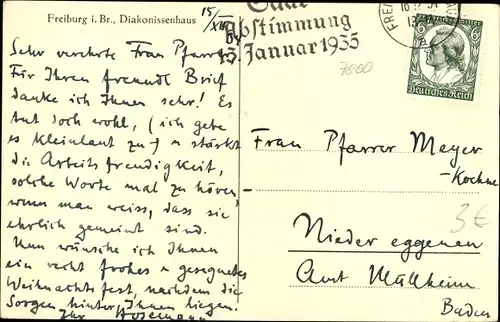 Freiburg i. Br., Diakonissenhaus
15/XII
Saar
Abstimmung
13. Januar 1935
FREI
7800
6
Deutsches Reich
Sehr verehrte Frau Pfarrer
Für Ihren freundl. Brief
danke ich Ihnen sehr! Es
tut doch wohl, (ich gebe
es kleinlaut zu) u stärkt
die Arbeitsfreudigkeit,
solche Worte mal zu hören
wenn man weiss, dass sie
ehrlich gemeint sind.
Nun wünsche ich Ihnen
ein recht frohes u gesegnetes
Weihnachtsfest, nachdem die
Sorgen hinter Ihnen liegen.
Ihr
Frau Pfarrer Meyer-
3€
Niedereggenen
Amt Müllheim
Baden